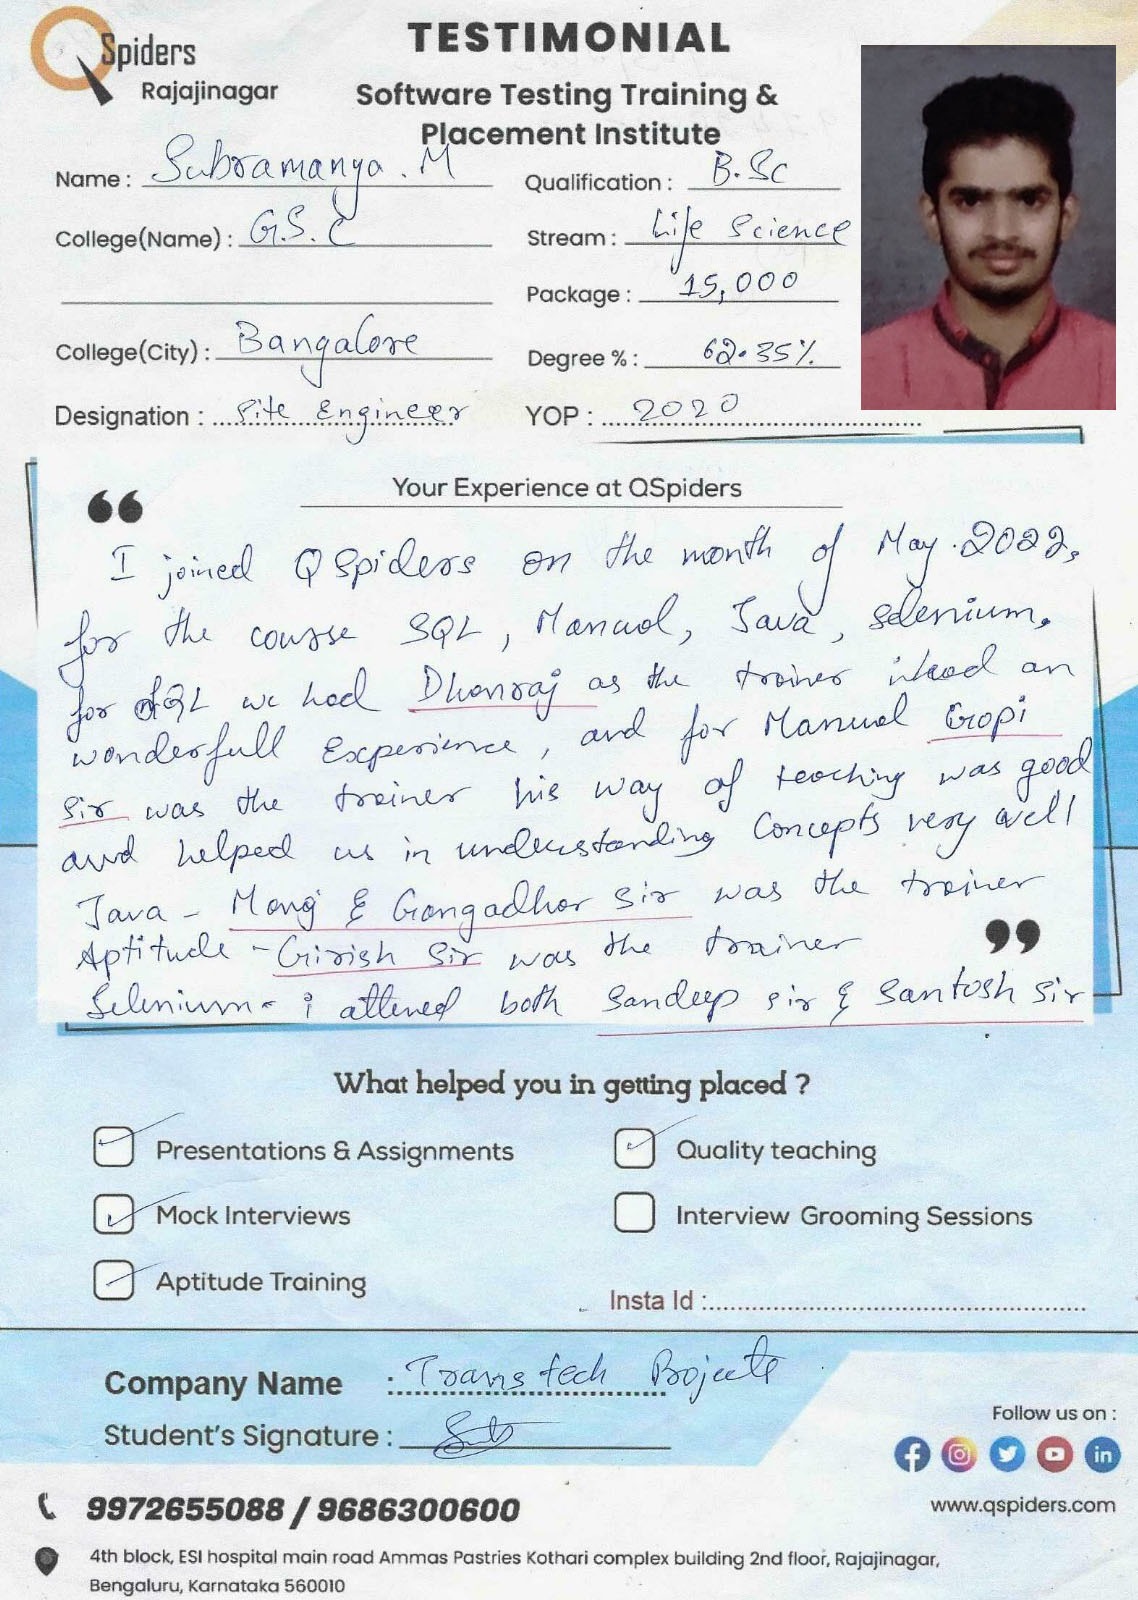 QSpiders
Rajajinagar
TESTIMONIAL
Software Testing Training &
Placement Institute
Name : Subramanya . M
Qualification : B.Sc
College(Name) : G.S.C
Stream : Life Science
Package : 15,000
College(City) : Bangalore
Degree % : 62.35%
Designation : Site Engineer
YOP : 2020
Your Experience at QSpiders
“
I joined QSpiders on the month of May.2022,
for the course SQL, Manual, Java, selenium,
for SQL we had Dhanraj as the trainer ihad an
wonderfull Experience, and for Manual Gopi
Sir was the trainer his way of teaching was good
and helped us in understanding Concepts very well
Java - Manoj & Gangadhar Sir was the trainer
Aptitude - Girish Sir was the trainer
”
Selenium - i attened both Sandeep sir & Santosh Sir
What helped you in getting placed ?
Presentations & Assignments
Quality teaching
Mock Interviews
Interview Grooming Sessions
Aptitude Training
Insta Id :
Company Name : Trans tech Projects
Student's Signature :
Follow us on :
www.qspiders.com
9972655088 / 9686300600
4th block, ESI hospital main road Ammas Pastries Kothari complex building 2nd floor, Rajajinagar,
Bengaluru, Karnataka 560010